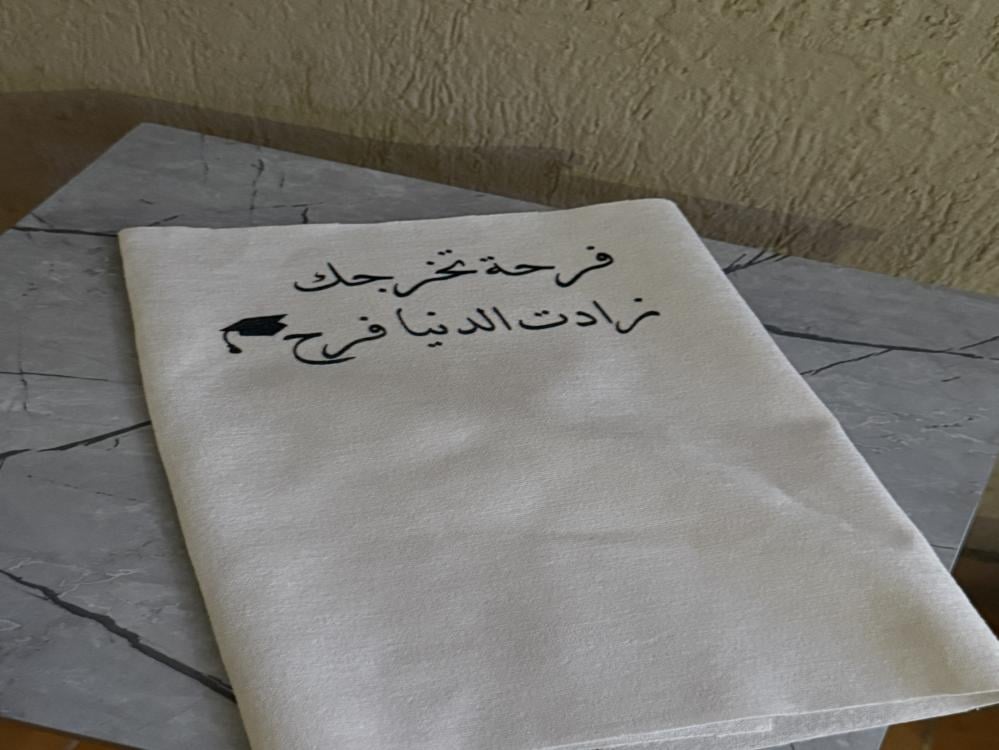 فرحة تخرجك
زادت الدنيا فرح